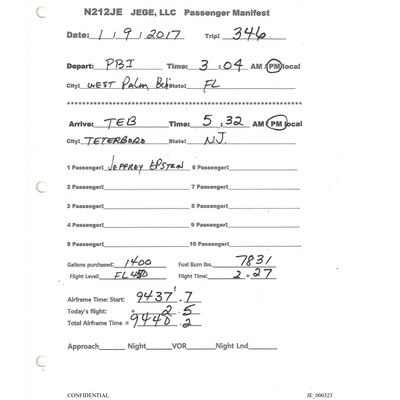 N212JE JEGE, LLC Passenger Manifest
Date: 1/9/2017 Trip: 346
Depart: PBI Time: 3:04 AM / PM local
City: WEST Palm Bch State: FL
TEB Time: 5:32 AM PM local
Arrive:
City: TETERBORO State: N.J.
1 Passenger: JEFFREY EPSTEIN 6 Passenger:
2 Passenger: 7 Passenger:
3 Passenger: 8 Passenger:
4 Passenger: 9 Passenger:
5 Passenger: 10 Passenger:
Gallons purchased: 1400 Fuel Burn lbs. 7831
Flight Level: FL450 Flight Time: 2+27
Airframe Time: Start: 9437.7
Today's flight: + 2.5
Total Airframe Time = 9440.2
Approach Night VOR Night Lnd
CONFIDENTIAL JE_000323